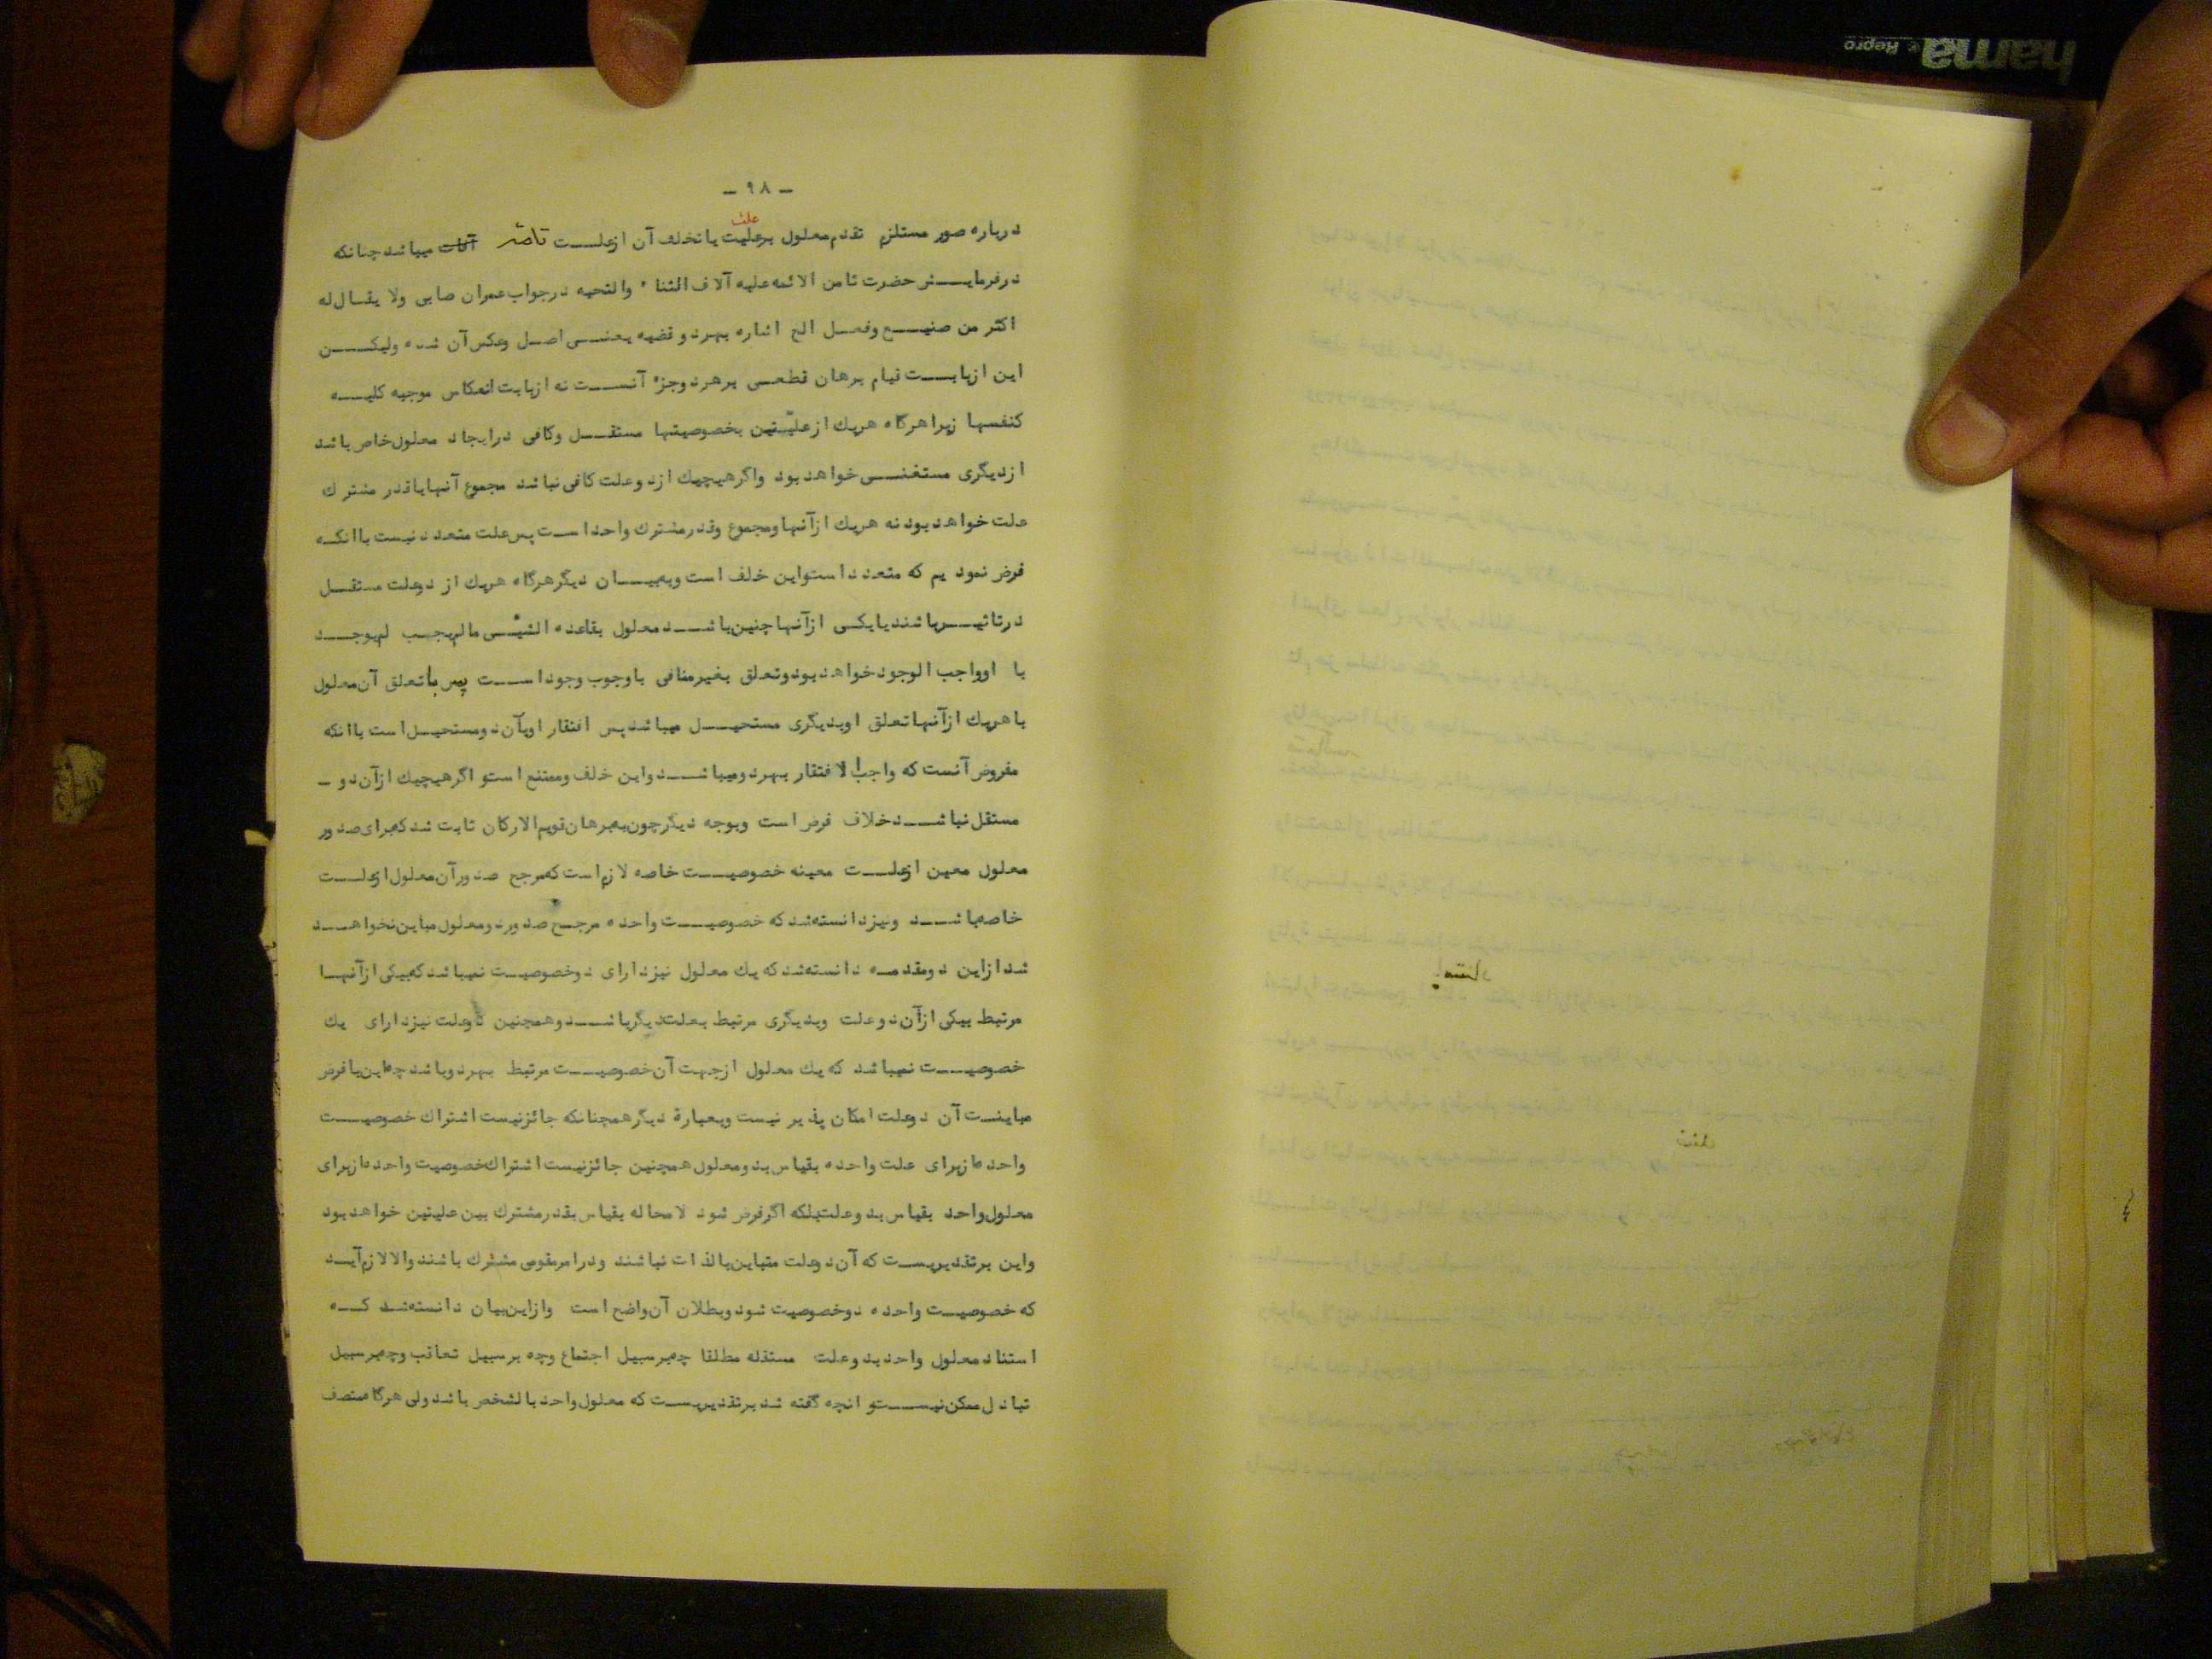 ـ ۹۸ ـ
درباره صور مستلزم تقدم معلول برعلیت علت یا تخلف آن ازعلـــت تامّه میباشد چنانکه
درفرمایـــش حضرت ثامن الائمه علیه آلاف الثناء والتحیه درجواب عمران صابی ولا یقـال له
اکثر من صنیـــع وفعـــل الخ اشاره بهردو قضیه یعنـــی اصـل وعکس آن شده ولیکـــن
این ازبابـــت قیام برهان قطعـــی برهردوجزء آنســـت نه ازبابت انعکاس موجبه کلیـــه
کنفسها زیرا هرگاه هریک ازعلیّتین بخصوصیتها مستقـــل وکافی درایجاد معلول خاص باشد
ازدیگری مستغنـــی خواهد بود واگر هیچیک ازدوعلت کافی نباشد مجموع آنها یا قدر مشترک
علت خواهد بود نه هریک ازآنها ومجموع وقدر مشترک واحداســـت پس علت متعدد نیست باانکـه
فرض نمودیم که متعدد است واین خلف است وببیـــان دیگر هرگاه هریک از دوعلت مستقـــل
درتاثیـــر باشند یا یکـی ازآنها چنین باشـــد معلول بقاعده الشیـــی مالم یجـــب لم یوجـــد
با اوواجب الوجود خواهد بود وتعلق بغیر منافی باوجوب وجود اســـت پس با تعلق آن معلول
با هریک ازآنها تعلق اوبدیگری مستحیـــل میباشد پس افتقار اوبآن دومستحیـل است باانکه
مفروض آنست که واجب الافتقار بهردو میباشـــد واین خلف وممتنع است و اگر هیچیک ازآن دو ـ
مستقل نباشـــد خلاف فرض است وبوجه دیگر چون ببرهان قویم الارکان ثابت شد که برای صدور
معلول معین ازعلـــت معینه خصوصیـــت خاصه لازم است که مرجح صدور آن معلول ازعلـــت
خاصه باشـــد ونیز دانسته شد که خصوصیـــت واحده مرجـح صدور دومعلول مباین نخواهـــد
شد ازاین دومقدمـه دانسته شد که یک معلول نیز دارای دوخصوصیـــت نمیباشد که بیکی ازآنهـا
مرتبط بیکی ازآن دوعلت وبدیگری مرتبط بعلت دیگر باشـــد وهمچنین دوعلت نیز دارای یک
خصوصیـــت نمیباشد که یک معلول ازجهت آن خصوصیـــت مرتبط بهردو باشد چه این با فرض
مباینـــت آن دوعلت امکان پذیر نیست وبعبارة دیگر همچنانکه جائز نیست اشتراک خصوصیـــت
واحده از برای علت واحده بقیاس بدو معلول همچنین جائز نیست اشتراک خصوصیت واحده از برای
معلول واحد بقیاس بدوعلت بلکه اگر فرض شود لامحاله بقیاس بقدر مشترک بین علیتین خواهد بود
واین برتقدیریســـت که آن دوعلت متباین بالذات نباشند ودرامر مقومی مشترک باشند والا لازم آیـــد
که خصوصیـــت واحده دوخصوصیت شود وبطلان آن واضح است وازاین بیان دانسته شـد کـــه
استناد معلول واحد بدوعلت مستقله مطلقا چه برسبیل اجتماع وچه برسبیل تعاقب وچه برسبیل
تبادل ممکن نیســـت و انچه گفته شد برتقدیریســـت که معلول واحد بالشخص باشد ولی هرگاه متصف
hama
Repro